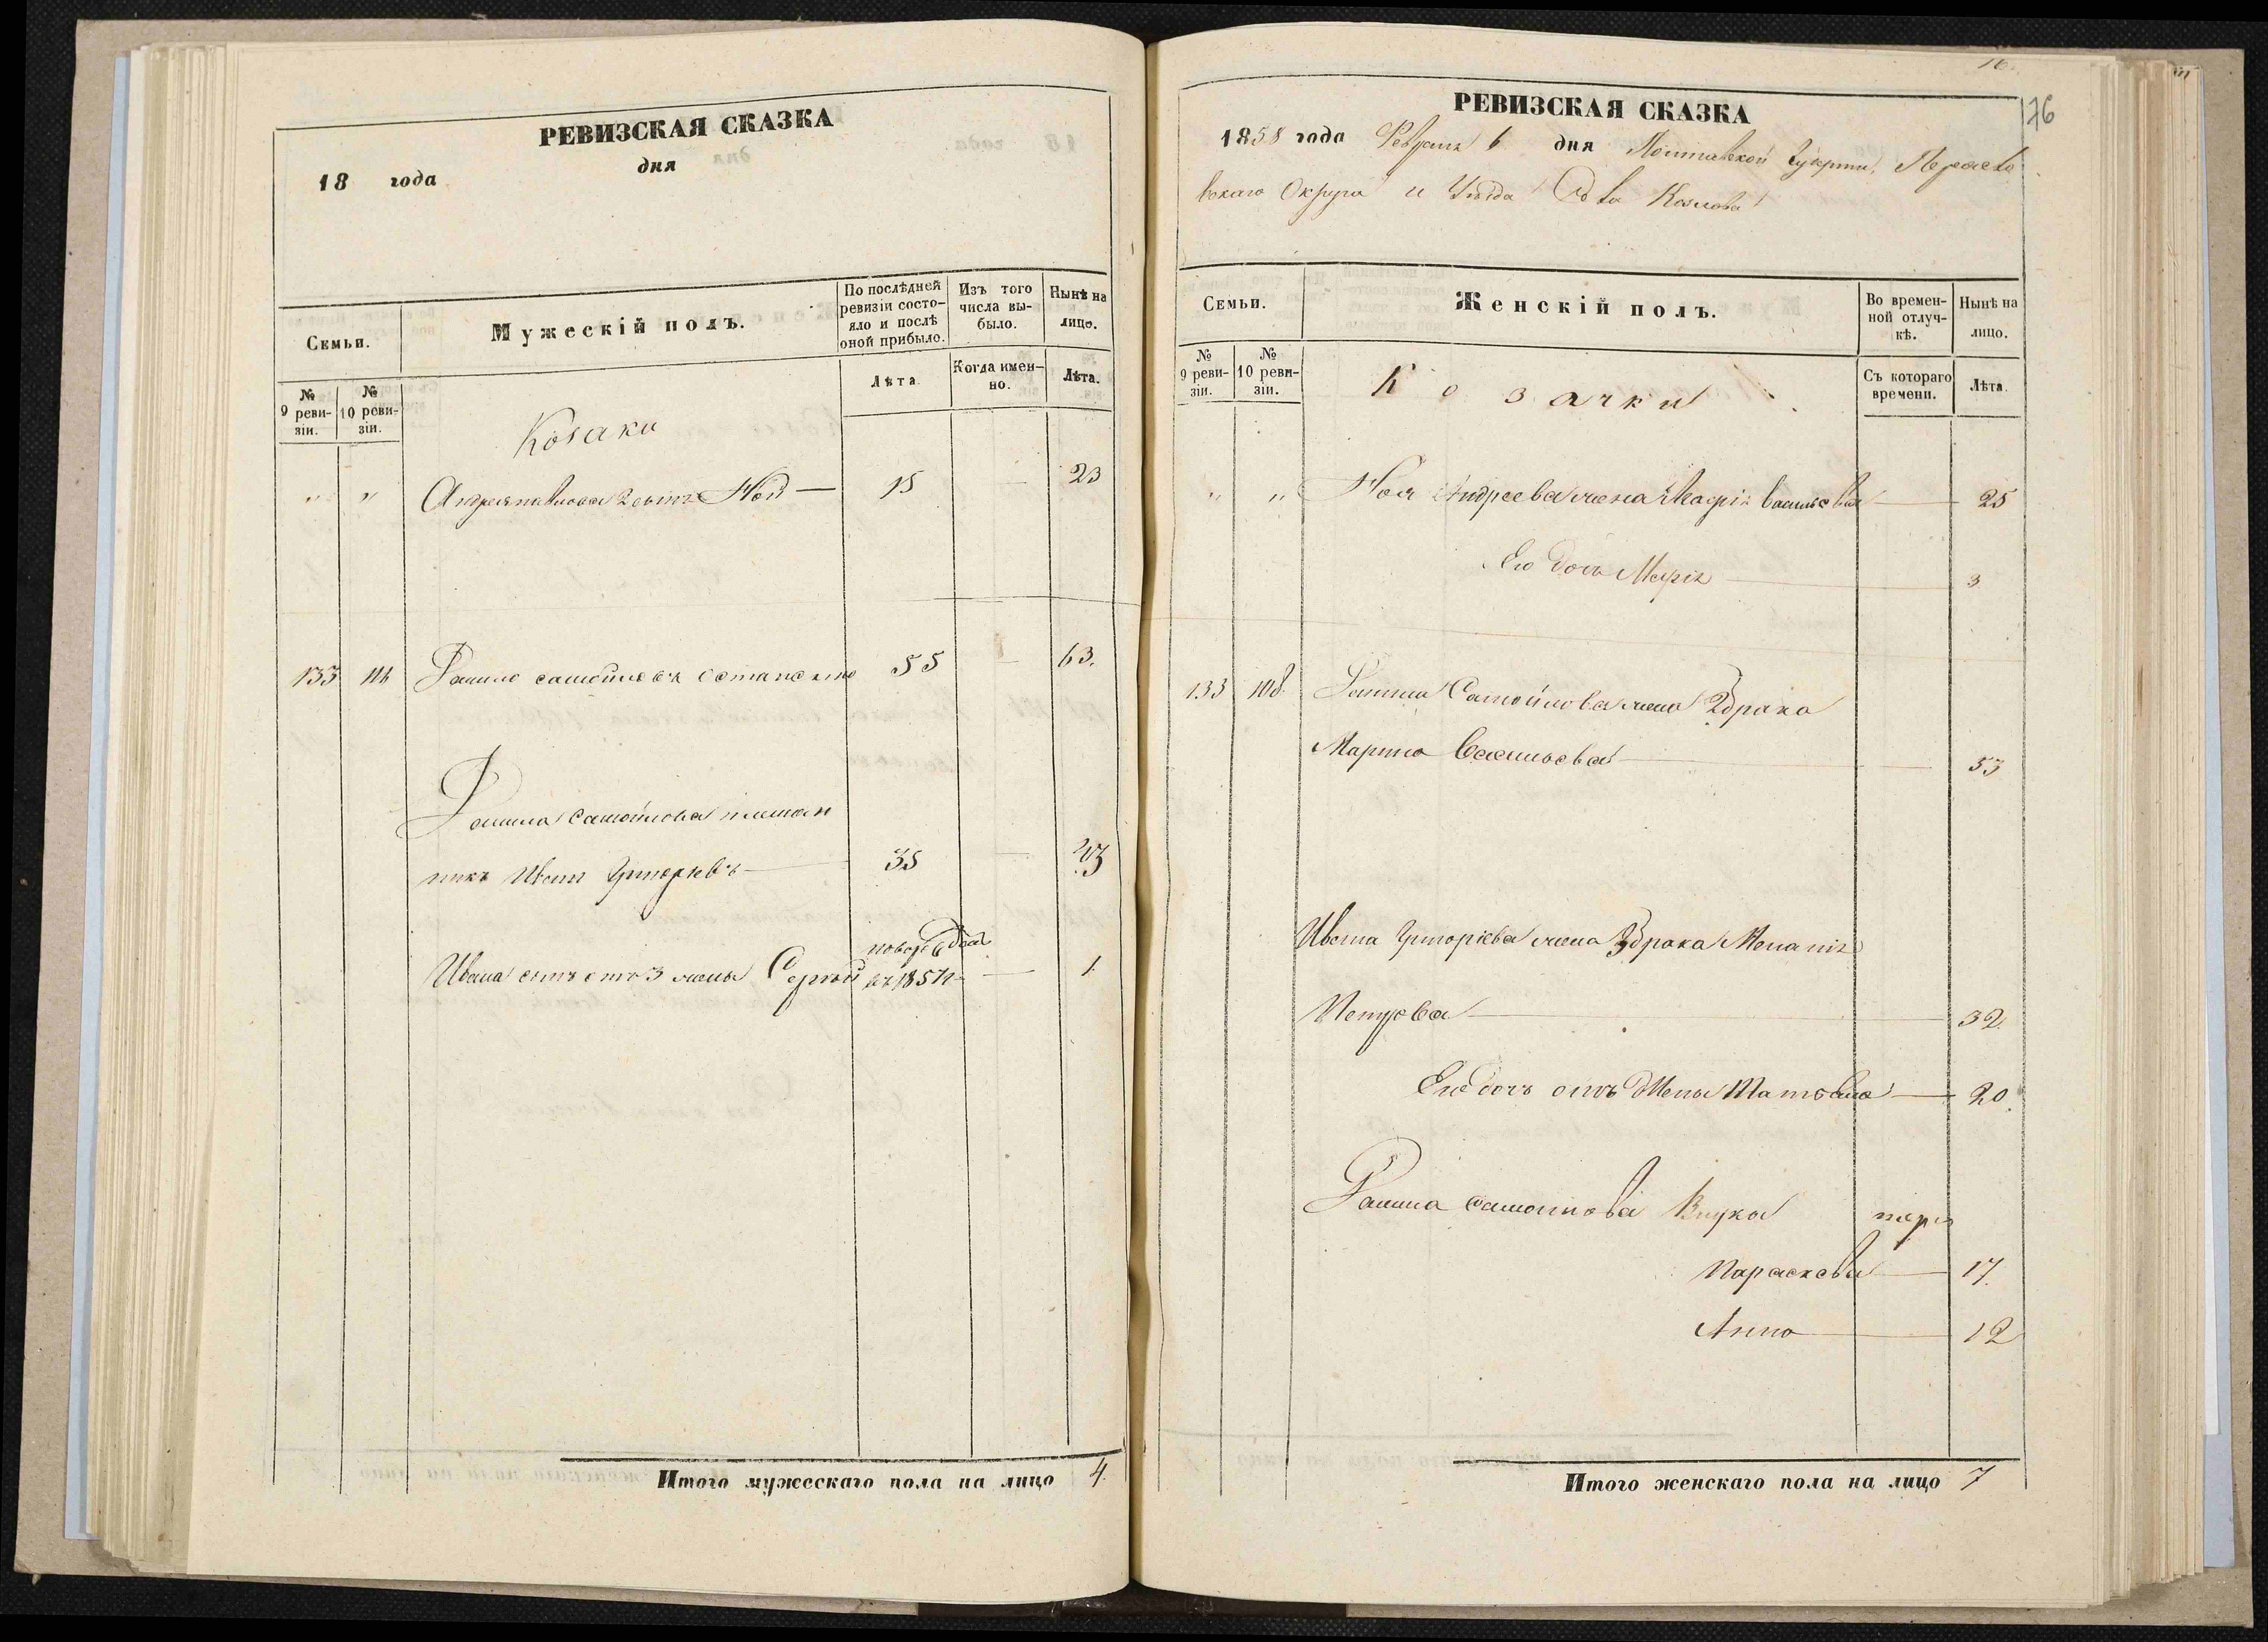 РЕВИЗСКАЯ СКАЗКА
18 года дня
Семьи.
Мужескій полъ.
По послѣдней ревизіи состояло и послѣ оной прибыло.
Изъ того числа выбыло.
Нынѣ на лицо.
№ 9 ревизіи.
№ 10 ревизіи.
Лѣта.
Когда именно.
Лѣта.
Козаки
" " Андрея Павлова 2 сынъ — 15 — 23
133 Данило Самойловъ Остапенко 55 — 63.
Данила Самойлова племян
никъ Иванъ Григорьевъ — 35 —
Ивана сынъ отъ 3 жены Сергѣй — 1.
Итого мужескаго пола на лицо 4.
16.
176
РЕВИЗСКАЯ СКАЗКА
1858 года Февраля 6 дня Полтавской Губерніи, Переясло
вскаго Округа и Уѣзда Козлова
Семьи.
Женскій полъ.
Во временной отлучкѣ.
Нынѣ на лицо.
№ 9 ревизіи.
№ 10 ревизіи.
Съ котораго времени.
Лѣта.
Козачки
" " Андреева жена Марія Васильева — 25
Его дочь Марія — 3
133 Данила Самойлова жена 2 брака
Марина Васильева — 53
Ивана Григоріева жена 3 брака Меланія
Петрова — 32.
Его дочь отъ жены Татьяна — 20.
Данила Самойлова Внука
Параскева — 17.
Анна — 12
Итого женскаго пола на лицо 7